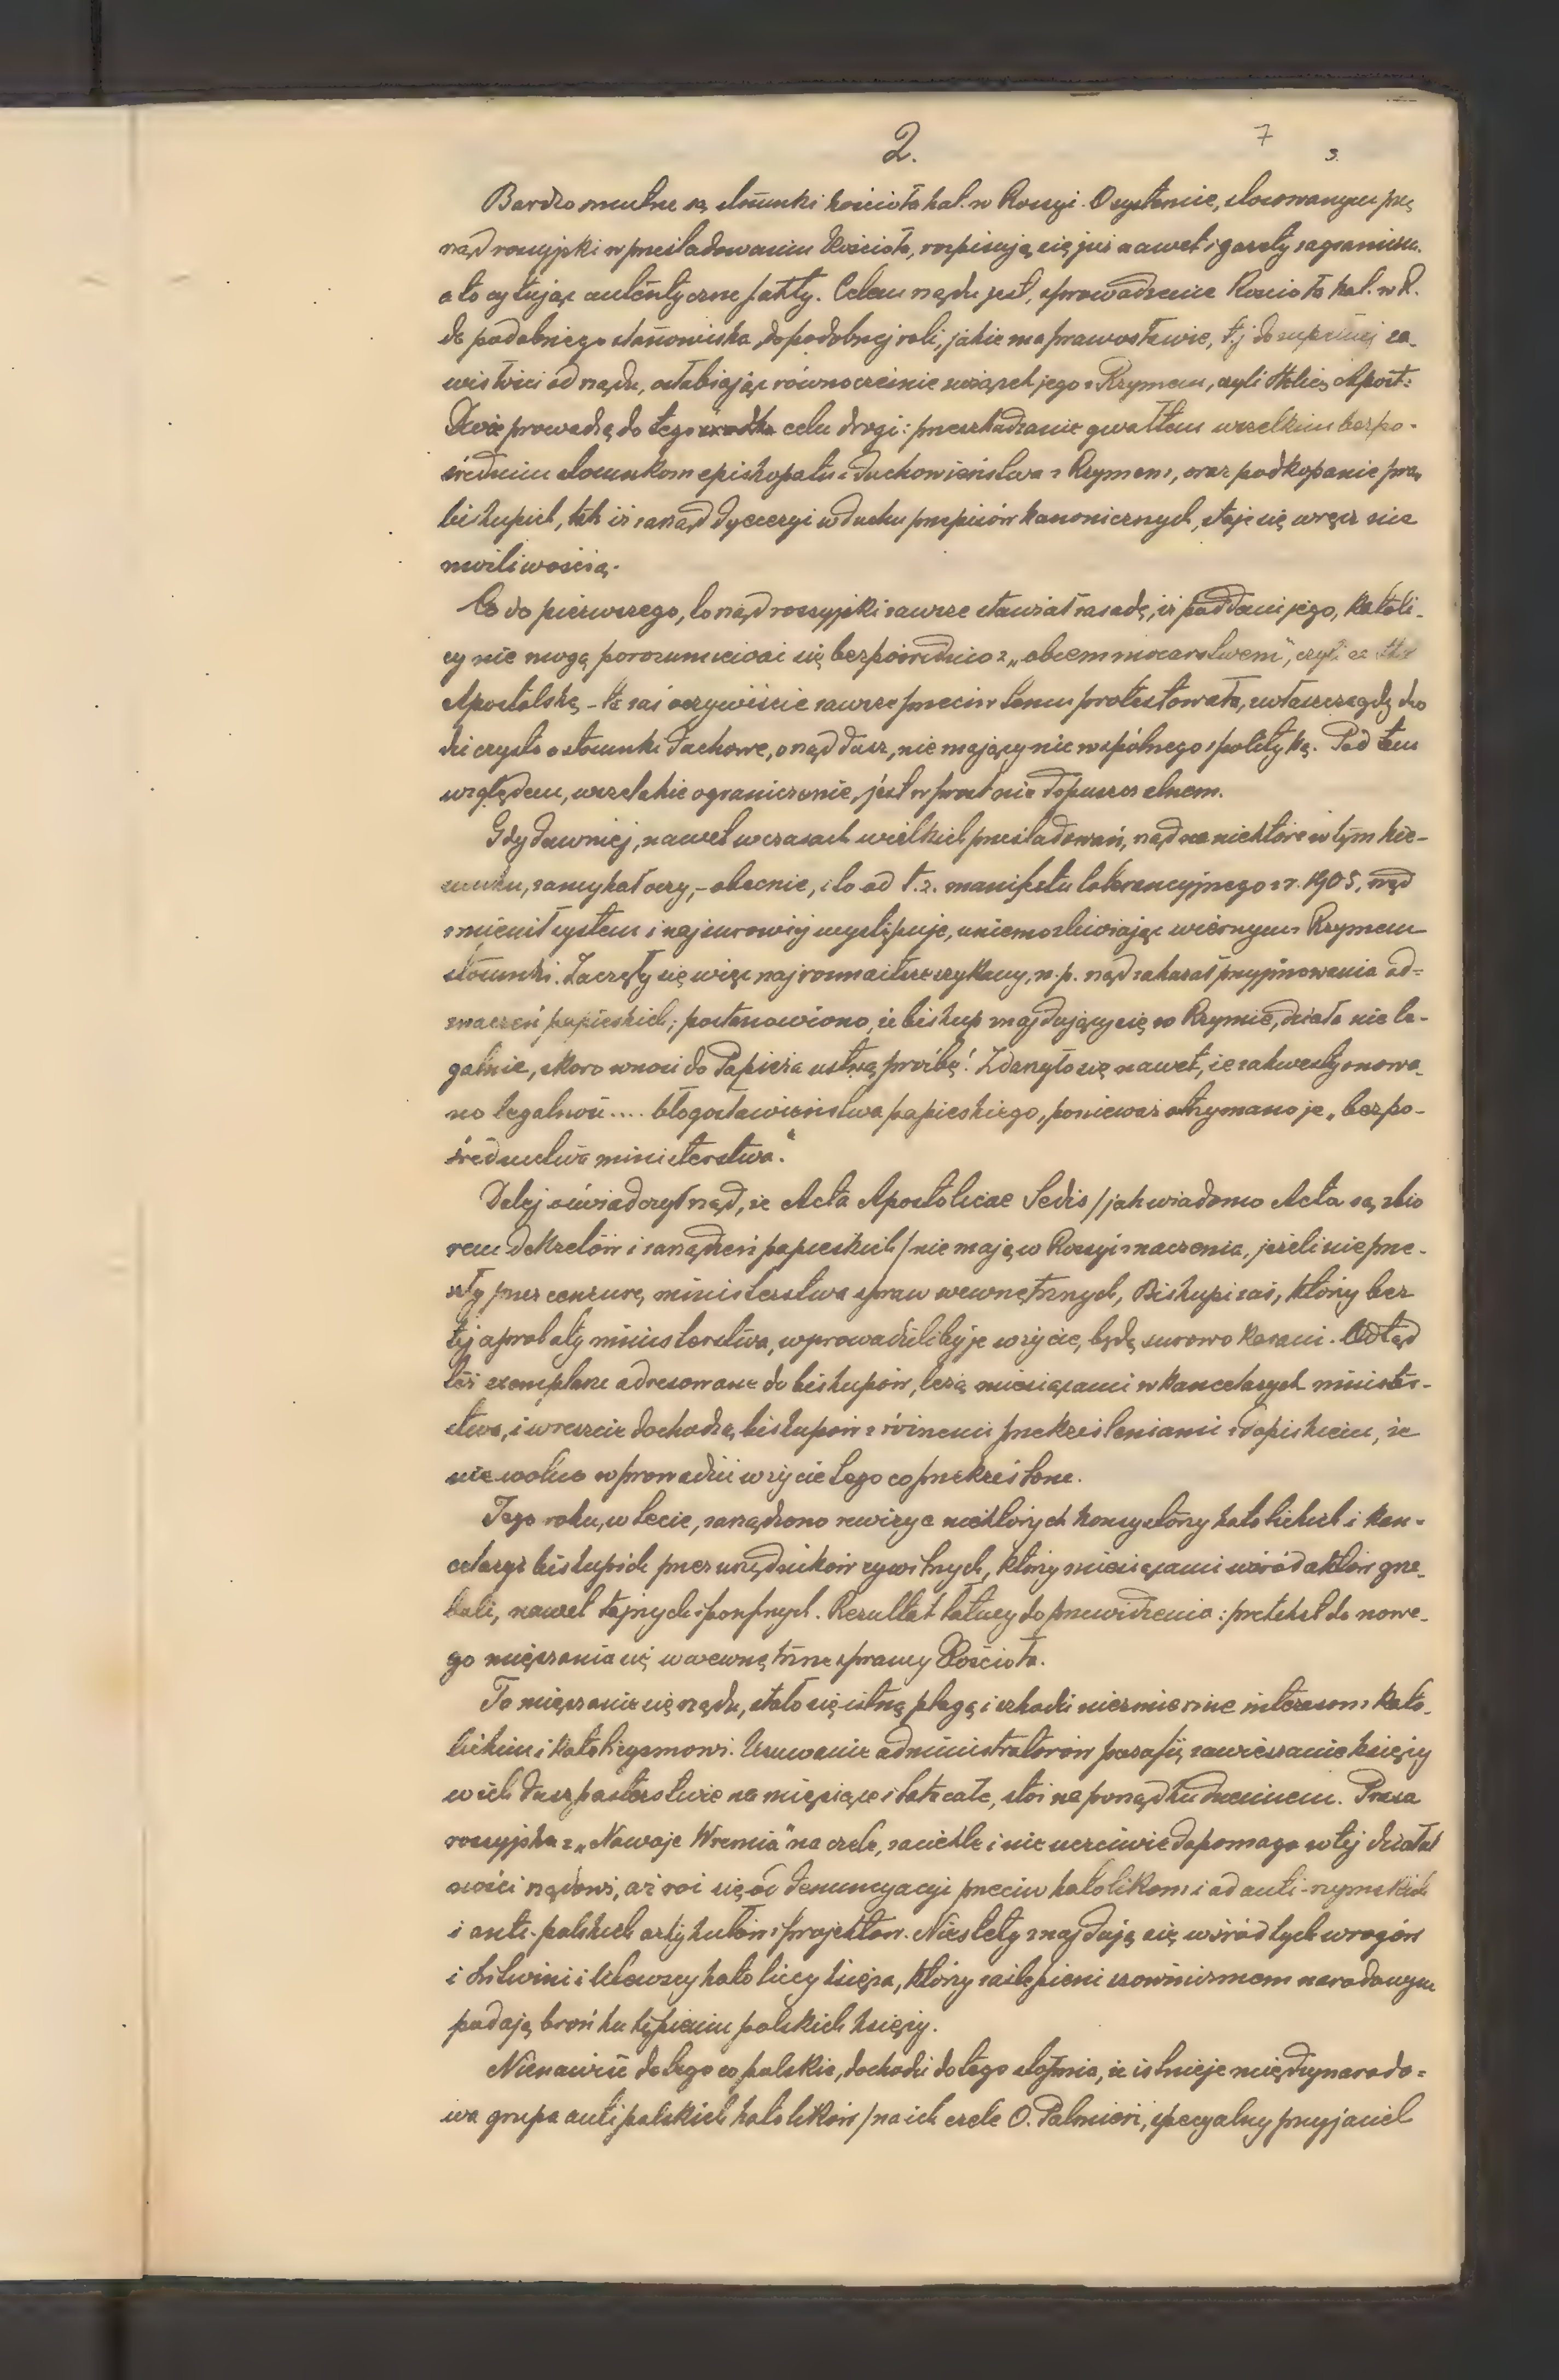 2.
7
3.
Bardzo smutne są stosunki kościoła kat. w Rossyi. O systemie, stosowanym prz
rząd rossyjski w prześladowaniu Kościoła, rozpisują się już nawet i gazety zagraniczn.
a to cytując autentyczne fakty. Celem rządu jest, sprowadzenie Kościoła kat. w R.
do podobnego stanowiska, do podobnej roli, jakie ma prawosławie, t.j. do zupełnej za-
wisłości od rządu, osłabiając równocześnie związek jego z Rzymem, czyli Stolicą Apost:
Dwie prowadzą do tego celu drogi: przeszkadzanie gwałtem wszelkim bezpo-
średnim stosunkom episkopatu i duchowieństwa z Rzymem, oraz podkopanie praw
biskupich, tak iż zarząd dyecezyi w duchu przepisów kanonicznych, staje się wręcz nie
możliwością.
Co do pierwszego, to rząd rossyjski zawsze stawiał zasadę, iż poddani jego, katoli-
cy nie mogą porozumiewać się bezpośrednio z „obcem mocarstwem", czyli ze Stol
Apostolską, - ta zaś oczywiście zawsze przeciw temu protestowała, zwłaszcza gdy cho
dzi czysto o stosunki duchowe, o rząd dusz, nie mający nic wspólnego z polityką. Pod tem
względem, wszelakie ograniczenie, jest wprost niedopuszczalnem.
Gdy dawniej, nawet w czasach wielkich prześladowań, rząd na niektóre w tym kie-
runku, zamykał oczy, - obecnie, i to od t.z. manifestu tolerancyjnego z r. 1905, rząd
zmienił system i najsurowiej występuje, uniemożliwiając wiernym z Rzymem
stosunki. Zaczęły się więc najrozmaitsze szykany, n.p. rząd zakazał przyjmowania od=
znaczeń papieskich; postanowiono, że biskup znajdujący się w Rzymie, działa nie le-
galnie, skoro wnosi do Papieża ustną prośbę! Zdarzyło się nawet, że zakwestyonowa-
no legalność .... błogosławieństwa papieskiego, ponieważ otrzymano je „bez po-
średnictwa ministerstwa."
Dalej oświadczył rząd, że Acta Apostolicae Sedis /jak wiadomo Acta są zbio
rem dekretów i zarządzeń papieskich/ nie mają w Rossyi znaczenia, jeżeli nie prze-
szły przez cenzurę ministerstwa spraw wewnętrznych, Biskupi zaś, którzy bez
tej aprobaty ministerstwa, wprowadziliby je w życie, będą surowo karani. Odtąd
też exemplarze adresowane do biskupów, leżą miesiącami w kancelaryach minister-
stwa, i wreszcie dochodzą biskupów z różnemi przekreśleniami i dopiskiem, że
nie wolno wprowadzić w życie tego co przekreślone.
Tego roku, w lecie, zarządzono rewizye niektórych konsystorzy katolickich i kan-
celaryi biskupich przez urzędników cywilnych, którzy miesiącami wśród aktów grze-
bali, nawet tajnych i poufnych. Rezultat łatwy do przewidzenia: pretekst do nowe-
go mięszania się w wewnętrzne sprawy Kościoła.
To mięszanie się rządu, stało się istną plagą i szkodzi niezmiernie interesom kato-
lickim i katolicyzmowi. Usuwanie administratorów parafii, zawieszanie księży
w ich duszpasterstwie na miesiące i lata całe, stoi na porządku dziennem. Prasa
rossyjska z „Nowoje Wremia" na czele, zaciekle i nieuczciwie dopomaga w tej działal
ności rządowi, aż roi się od denuncyacyi przeciw katolikom i od anti-rzymskich
i anti-polskich artykułów i projektów. Niestety znajdują się wśród tych wrogów
i Litwini i litewscy katoliccy księża, którzy zaślepieni szowinizmem narodowym
podają broń ku tępieniu polskich księży.
Nienawiść do tego co polskie, dochodzi do tego stopnia, że istnieje międzynarodo=
wa grupa antipolskich katolików /na ich czele O. Palmieri, specyalny przyjaciel